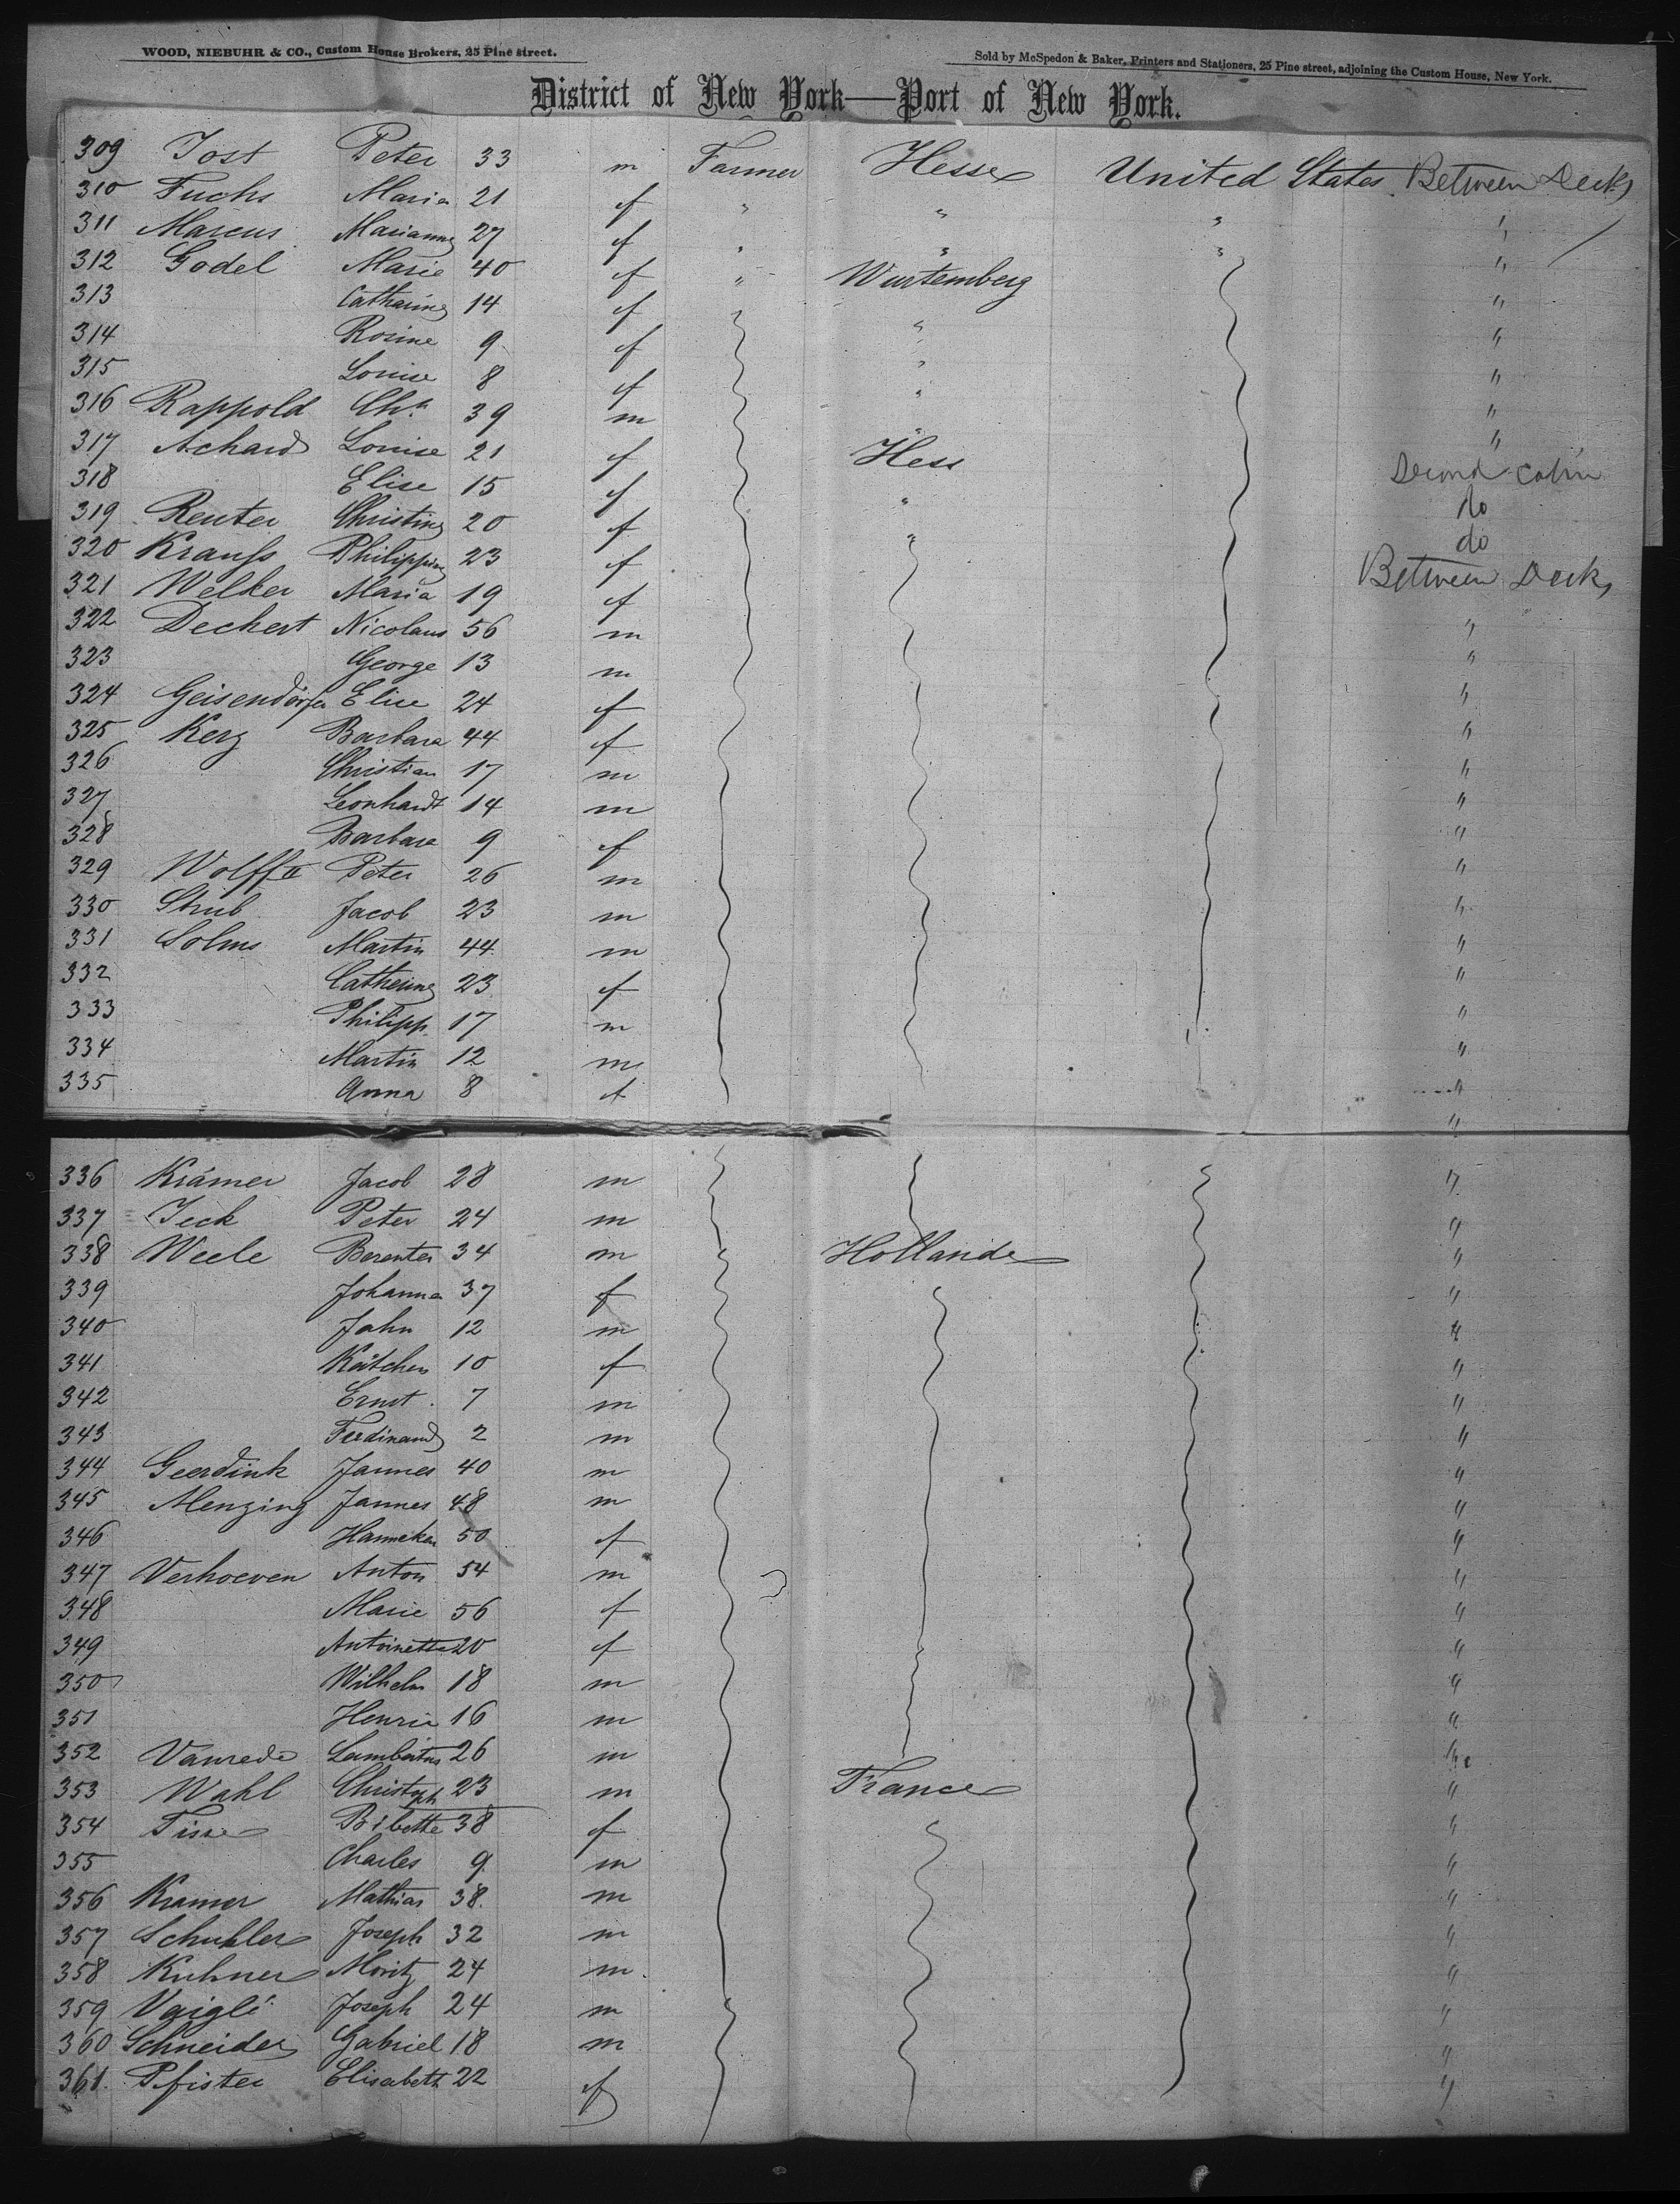 WOOD, NIEBUHR & CO., Custom House Brokers, 25 Pine street.
Sold by McSpedon & Baker, Printers and Stationers, 25 Pine street, adjoining the Custom House, New York.
District of New York—Port of New York.
309 Jost Peter 33 m Farmer Hesse United States Between Decks
310 Fuchs Maria 21 f " " " "
311 Marcus Marianne 27 f " " " "
312 Godel Marie 40 f " Wurtemberg "
313 Catharine 14 f " "
314 Rosine 9 f " "
315 Louise 8 f " "
316 Rappold Chr. 39 m " "
317 Achard Louise 21 f Hess Second Cabin
318 Elise 15 f " do
319 Reuter Christine 20 f " do
320 Krauss Philippine 23 f Between Decks
321 Welker Maria 19 f "
322 Dechert Nicolaus 56 m "
323 George 13 m "
324 Geisendörfer Elise 24 f "
325 Kerz Barbara 44 f "
326 Christian 17 m "
327 Leonhardt 14 m "
328 Barbara 9 f "
329 Wolff II Peter 26 m "
330 Strub Jacob 23 m "
331 Solms Martin 44 m "
332 Catherine 23 f "
333 Philipp 17 m "
334 Martin 12 m "
335 Anna 8 f "
336 Krämer Jacob 28 m "
337 Jeck Peter 24 m "
338 Weele Berenter 34 m Hollande "
339 Johanna 37 f "
340 John 12 m "
341 Kätchen 10 f "
342 Ernst 7 m "
343 Ferdinand 2 m "
344 Geerdink Jannes 40 m "
345 Menzing Jannes 48 m "
346 Hanneken 50 f "
347 Verhoeven Anton 54 m "
348 Marie 56 f "
349 Antoinette 20 f "
350 Wilhelm 18 m "
351 Henrie 16 m "
352 Vanrede Lambertus 26 m "
353 Wahl Christoph 23 m France "
354 Tisse Bibette 38 f "
355 Charles 9 m "
356 Kramer Mathias 38 m "
357 Schuhler Joseph 32 m "
358 Kuhner Moritz 24 m "
359 Vaiglé Joseph 24 m "
360 Schneider Gabriel 18 m "
361 Pfister Elisabeth 22 f "